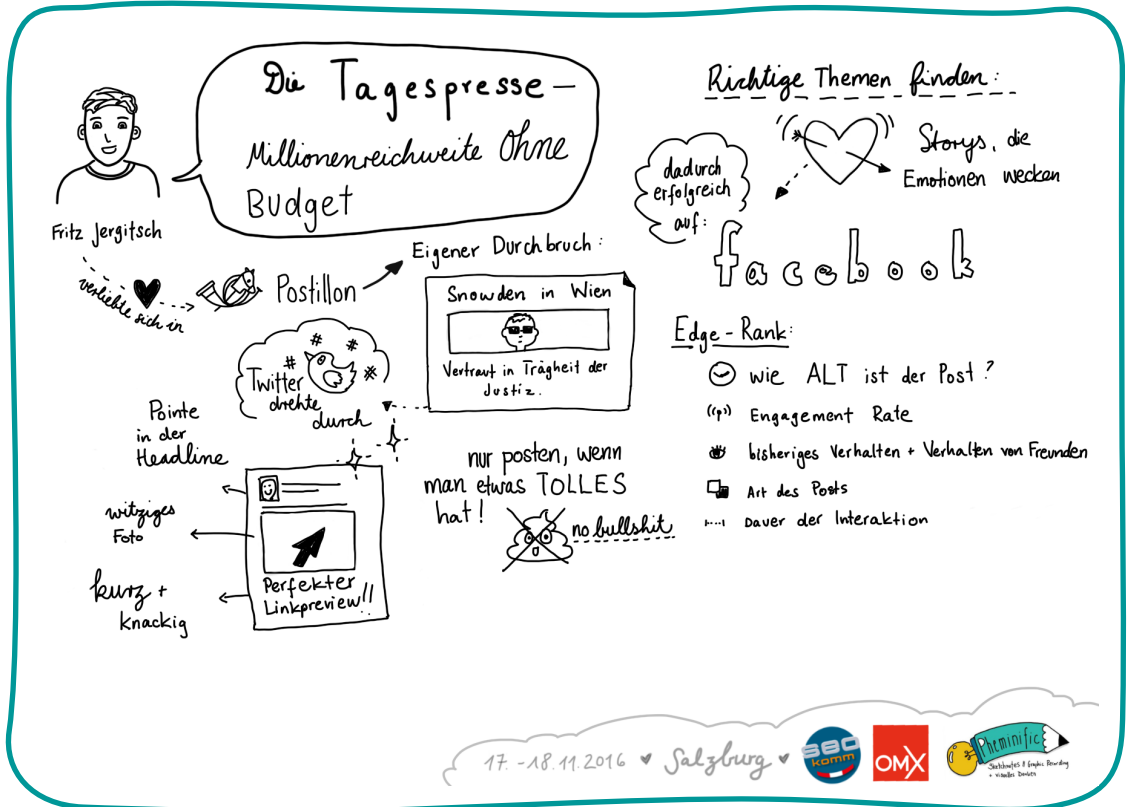 Die Tagespresse –
Millionenreichweite Ohne
Budget
Fritz Jergitsch
verliebte sich in
Postillon
Eigener Durchbruch:
Snowden in Wien
Vertraut in Trägheit der
Justiz.
# # # #
Twitter
drehte
durch
Pointe
in der
Headline
witziges
Foto
kurz +
knackig
Perfekter
Linkpreview!!
nur posten, wenn
man etwas TOLLES
hat!
no bullshit
Richtige Themen finden:
Storys, die
Emotionen wecken
dadurch
erfolgreich
auf:
facebook
Edge-Rank:
wie ALT ist der Post?
Engagement Rate
bisheriges Verhalten + Verhalten von Freunden
Art des Posts
Dauer der Interaktion
17. -18.11.2016 ♥ Salzburg ♥
SEO
komm
OMX
Pheminific
Sketchnotes & Graphic Recording
+ visuelles Denken